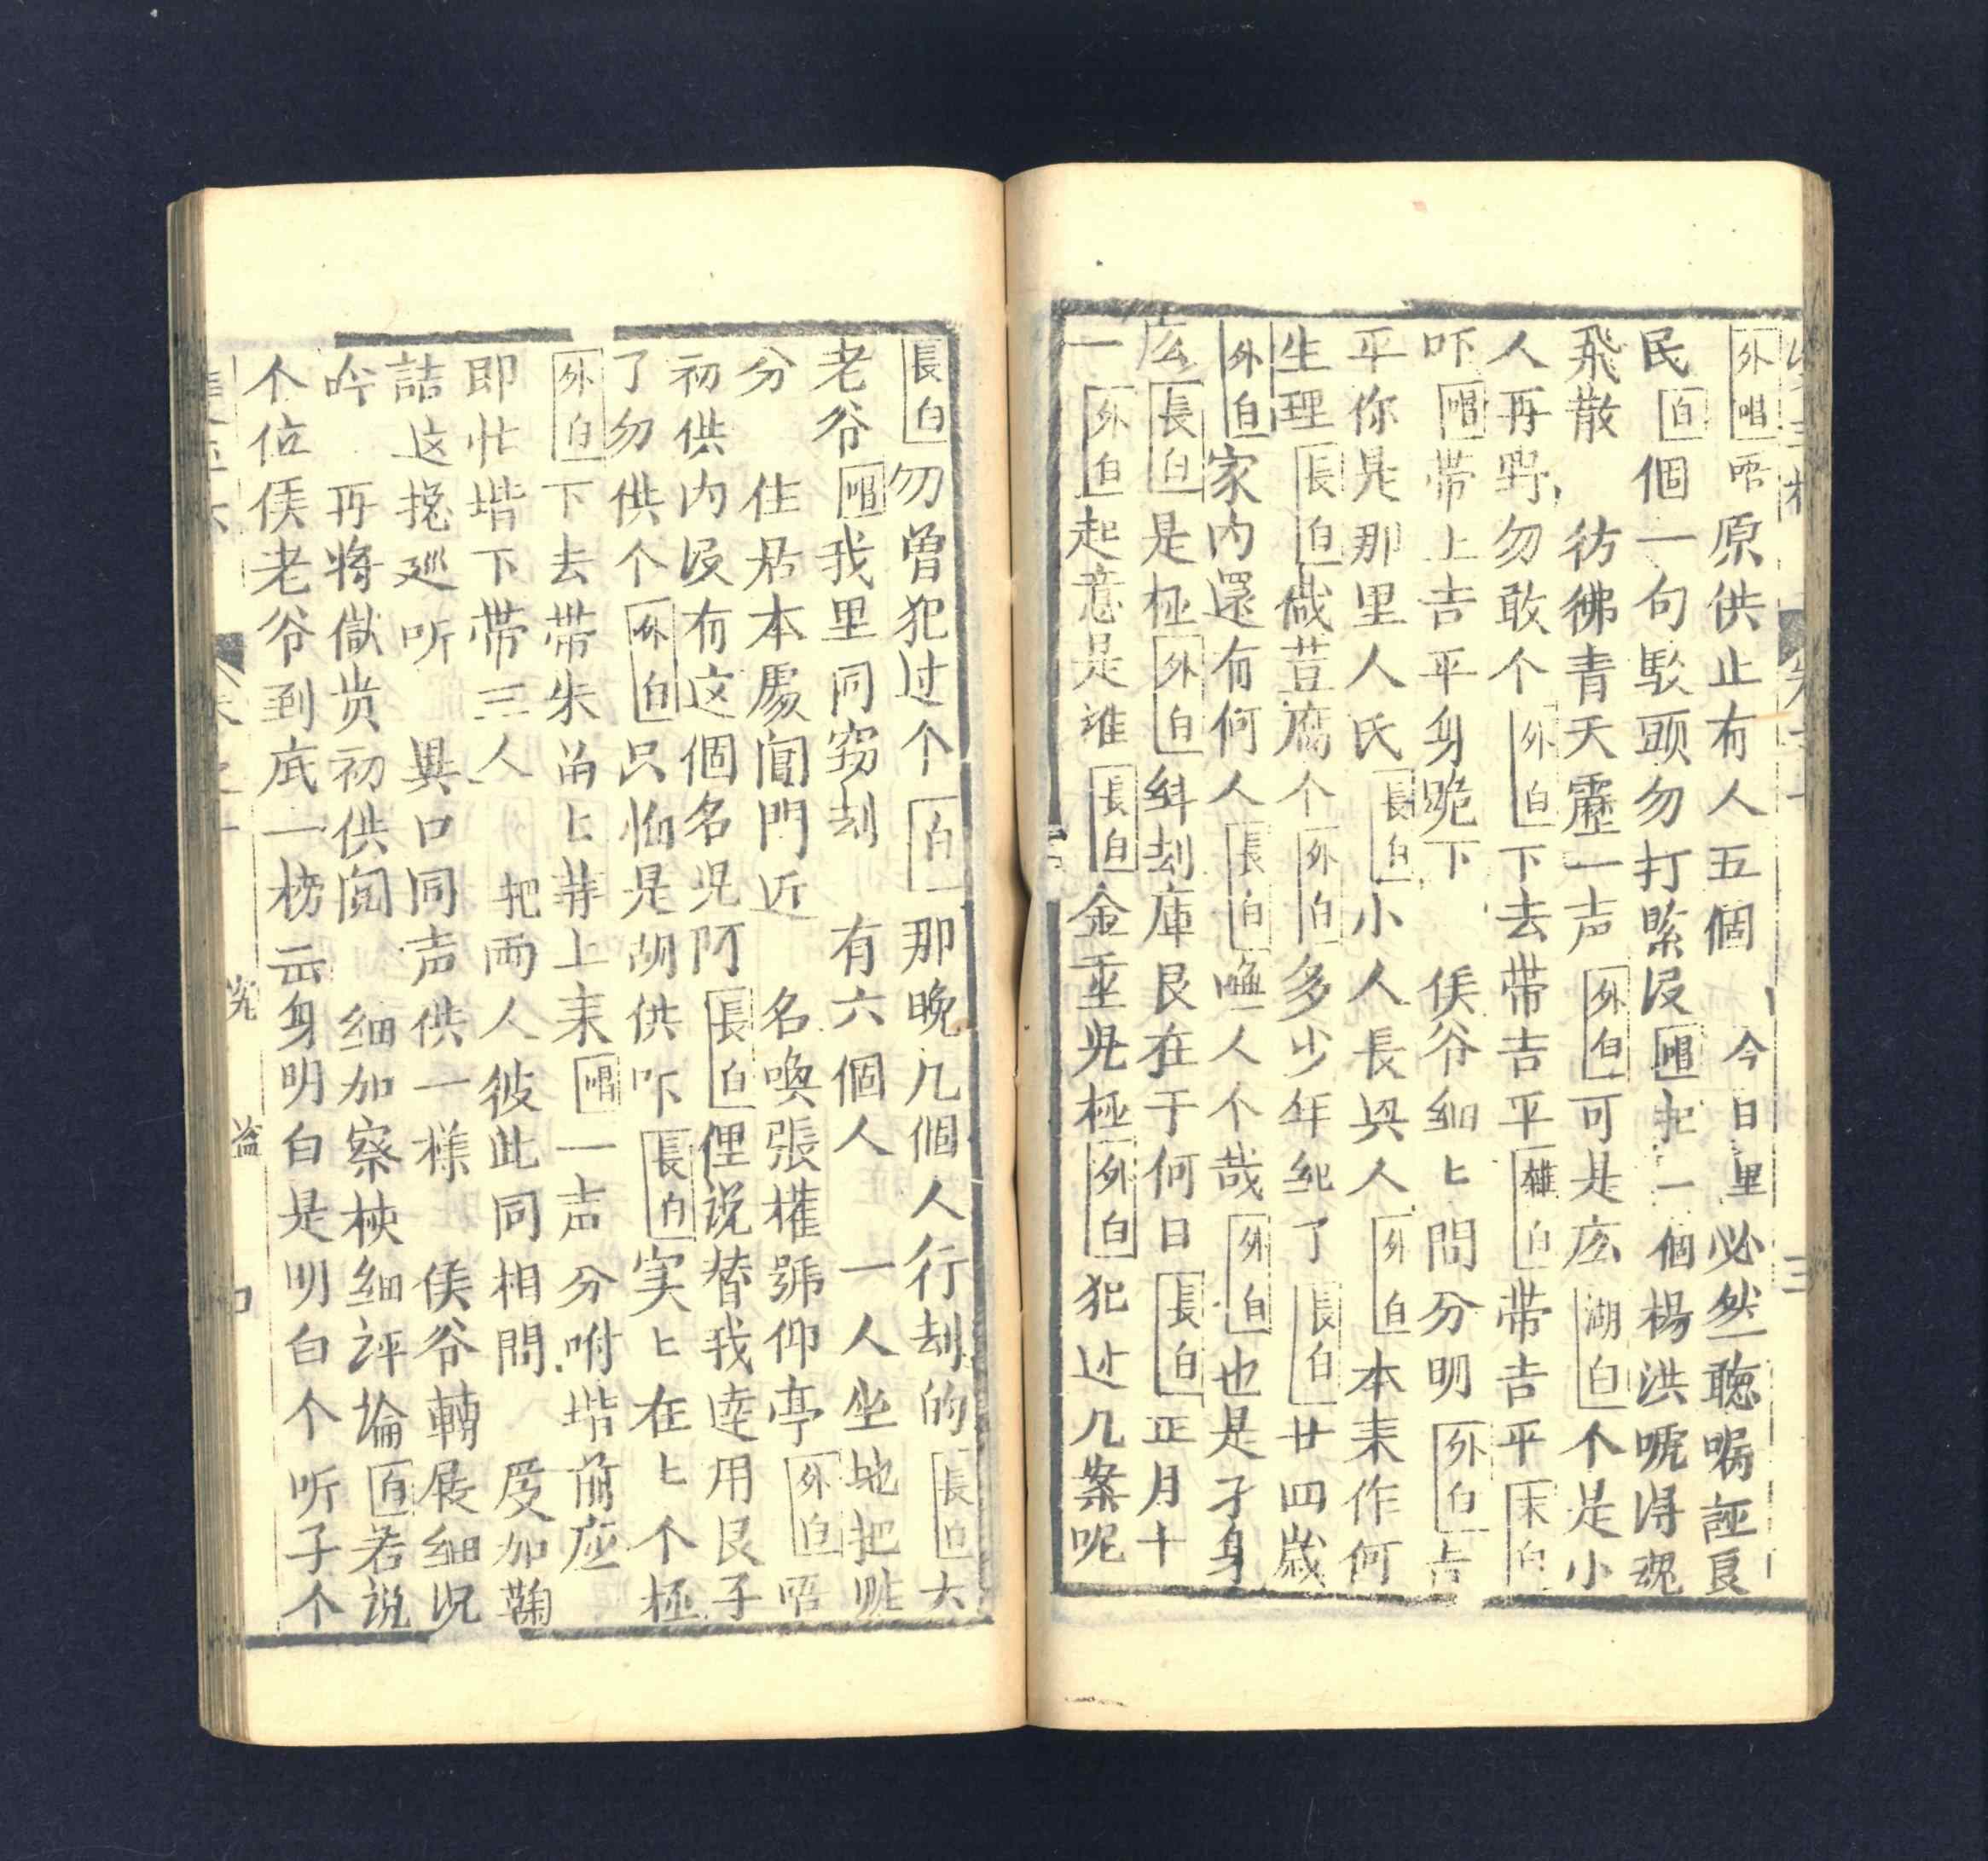 外唱唔原供止有人五個　今日里必然一聴嘱誣良
民白個一句駁頭勿打緊没唱把一個楊洪唬得魂
飛散　彷彿青天靂一声外白可是庅湖白个是小
人再野勿敢个外白下去带吉平雜白带吉平末白
吓唱带上吉平身跪下　侯爷細〻問分明外白吉
平你是那里人氏長白小人長興人外白本来作何
生理長白做荳腐个外白多少年紀了長白廿四歲
外白家内還有何人長白喚一人个哉外白也是孑身
庅長白是极外白糾刼庫艮在于何日長白正月十
一外白起意是誰長白金重光極外白犯过几案呢
長白勿曾犯过个白那晚几個人行刼的長白大
老爷唱我里同窃刼　有六個人　一人坐地把赃
分　住居本處閶門近　名喚張權號仰亭外白唔
初供内没有这個名児阿長白俚说替我逹用艮子
了勿供个外白只怕是胡供吓長白实〻在〻个極
外白下去带朱畄〻井上来唱一声分咐堦前应
即忙堦下带三人　把两人彼此同相問　㪅加鞠
詰这挽廵听　異口同声供一樣　侯爷輾展細况
吟　再将獄贲初供閲　細加察核細評論白若说
个位侯老爷到底一榜云身明白是明白个听子个